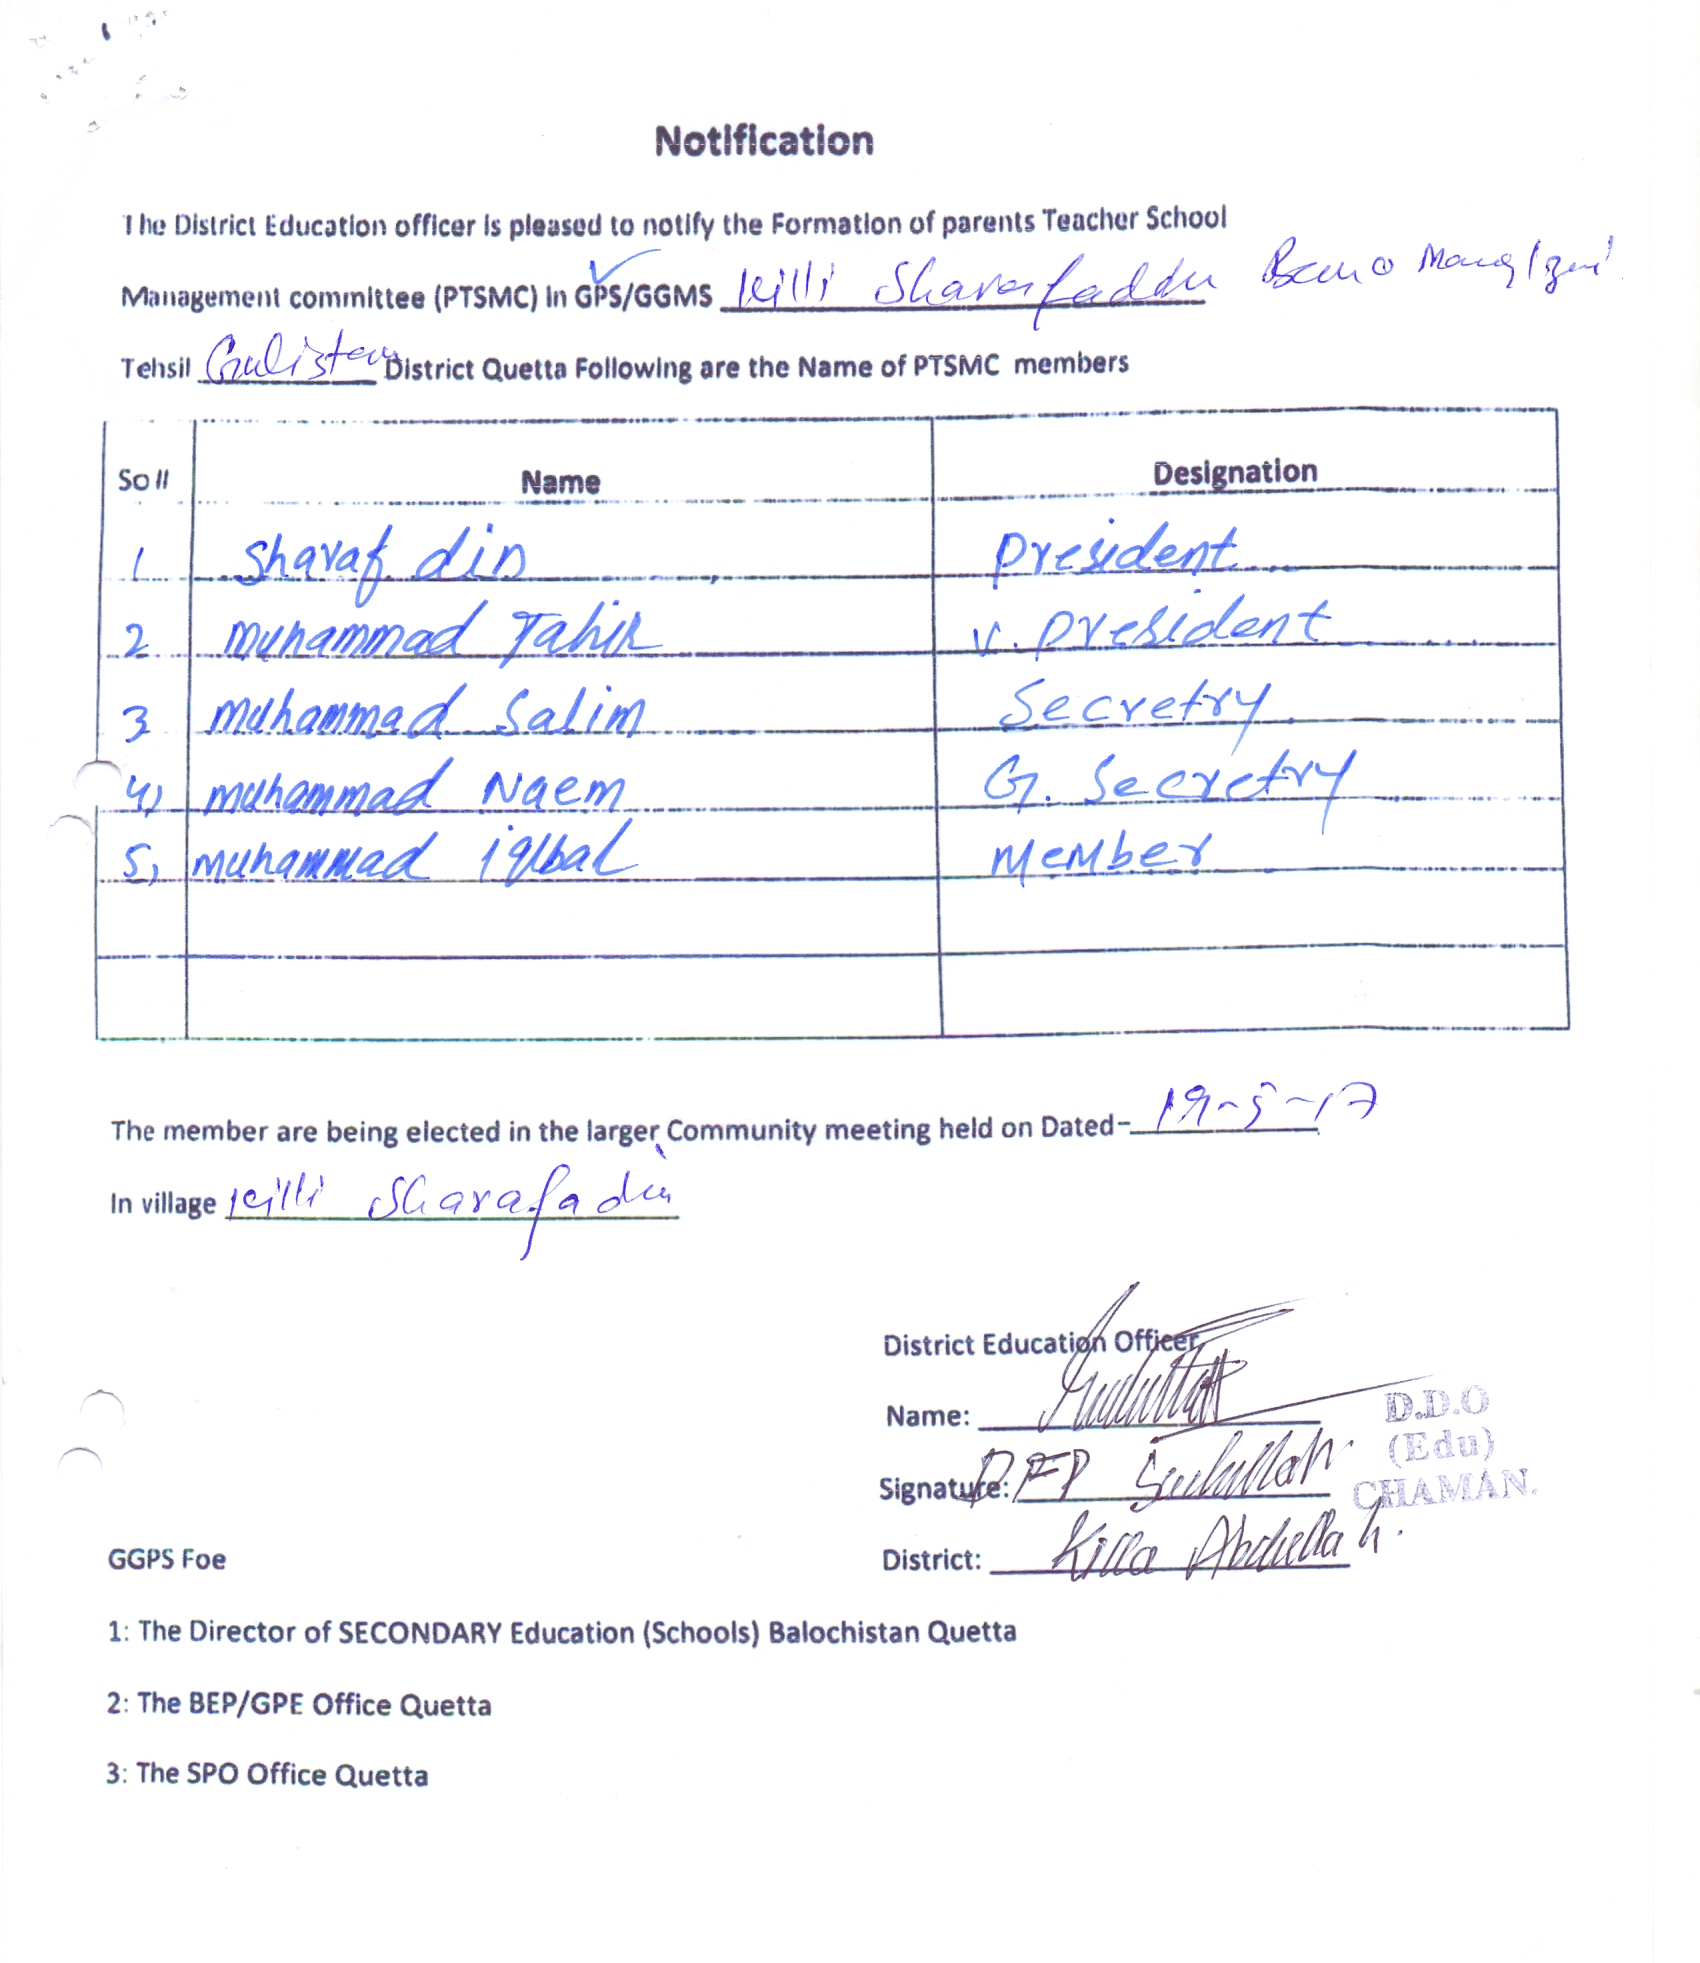 Notification
The District Education officer is pleased to notify the Formation of parents Teacher School
Management committee (PTSMC) in GPS/GGMS Killi Sharafaddin
Tehsil Gulistan District Quetta Following are the Name of PTSMC members
So # Name Designation
1 Sharaf din president
2 muhammad Tahir v. president
3 muhammad Salim Secretry
4) muhammad Naem G. Secretry
5) muhammad iqbal Member
The member are being elected in the larger Community meeting held on Dated- 19-5-17
In village Killi Sharafadin
District Education Officer
Name:
Signature:
District: Killa Abdullah.
D.D.O
(Edu)
CHAMAN.
GGPS Foe
1: The Director of SECONDARY Education (Schools) Balochistan Quetta
2: The BEP/GPE Office Quetta
3: The SPO Office Quetta